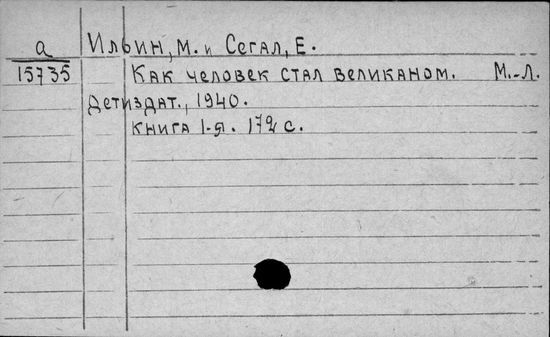 а Ильин, М. и Сегал, Е.
15735 Как человек стал великаном. М.-Л.
Детиздат., 1940.
книга 1-я. 172 с.